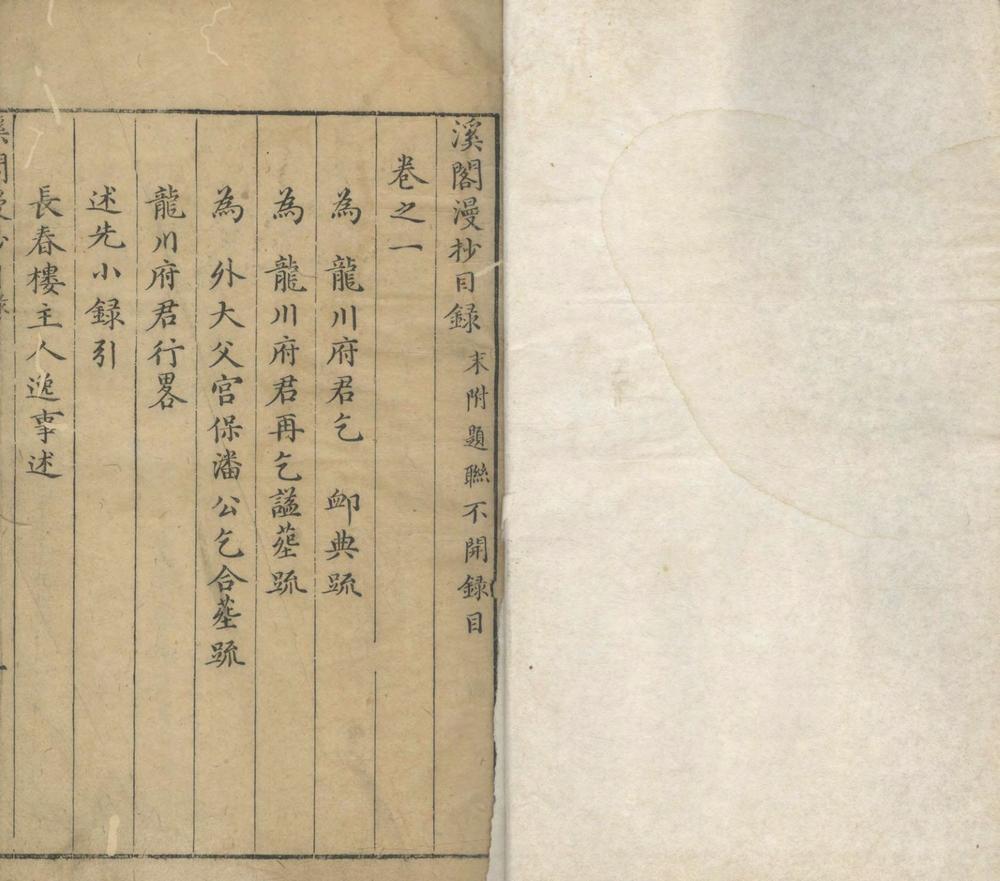 溪閣漫抄目録 末附題聯不開録目
卷之一
為 龍川府君乞 卹典疏
為 龍川府君再乞謚塟疏
為 外大父宮保潘公乞合塟疏
龍川府君行畧
述先小録引
長春樓主人逸事述